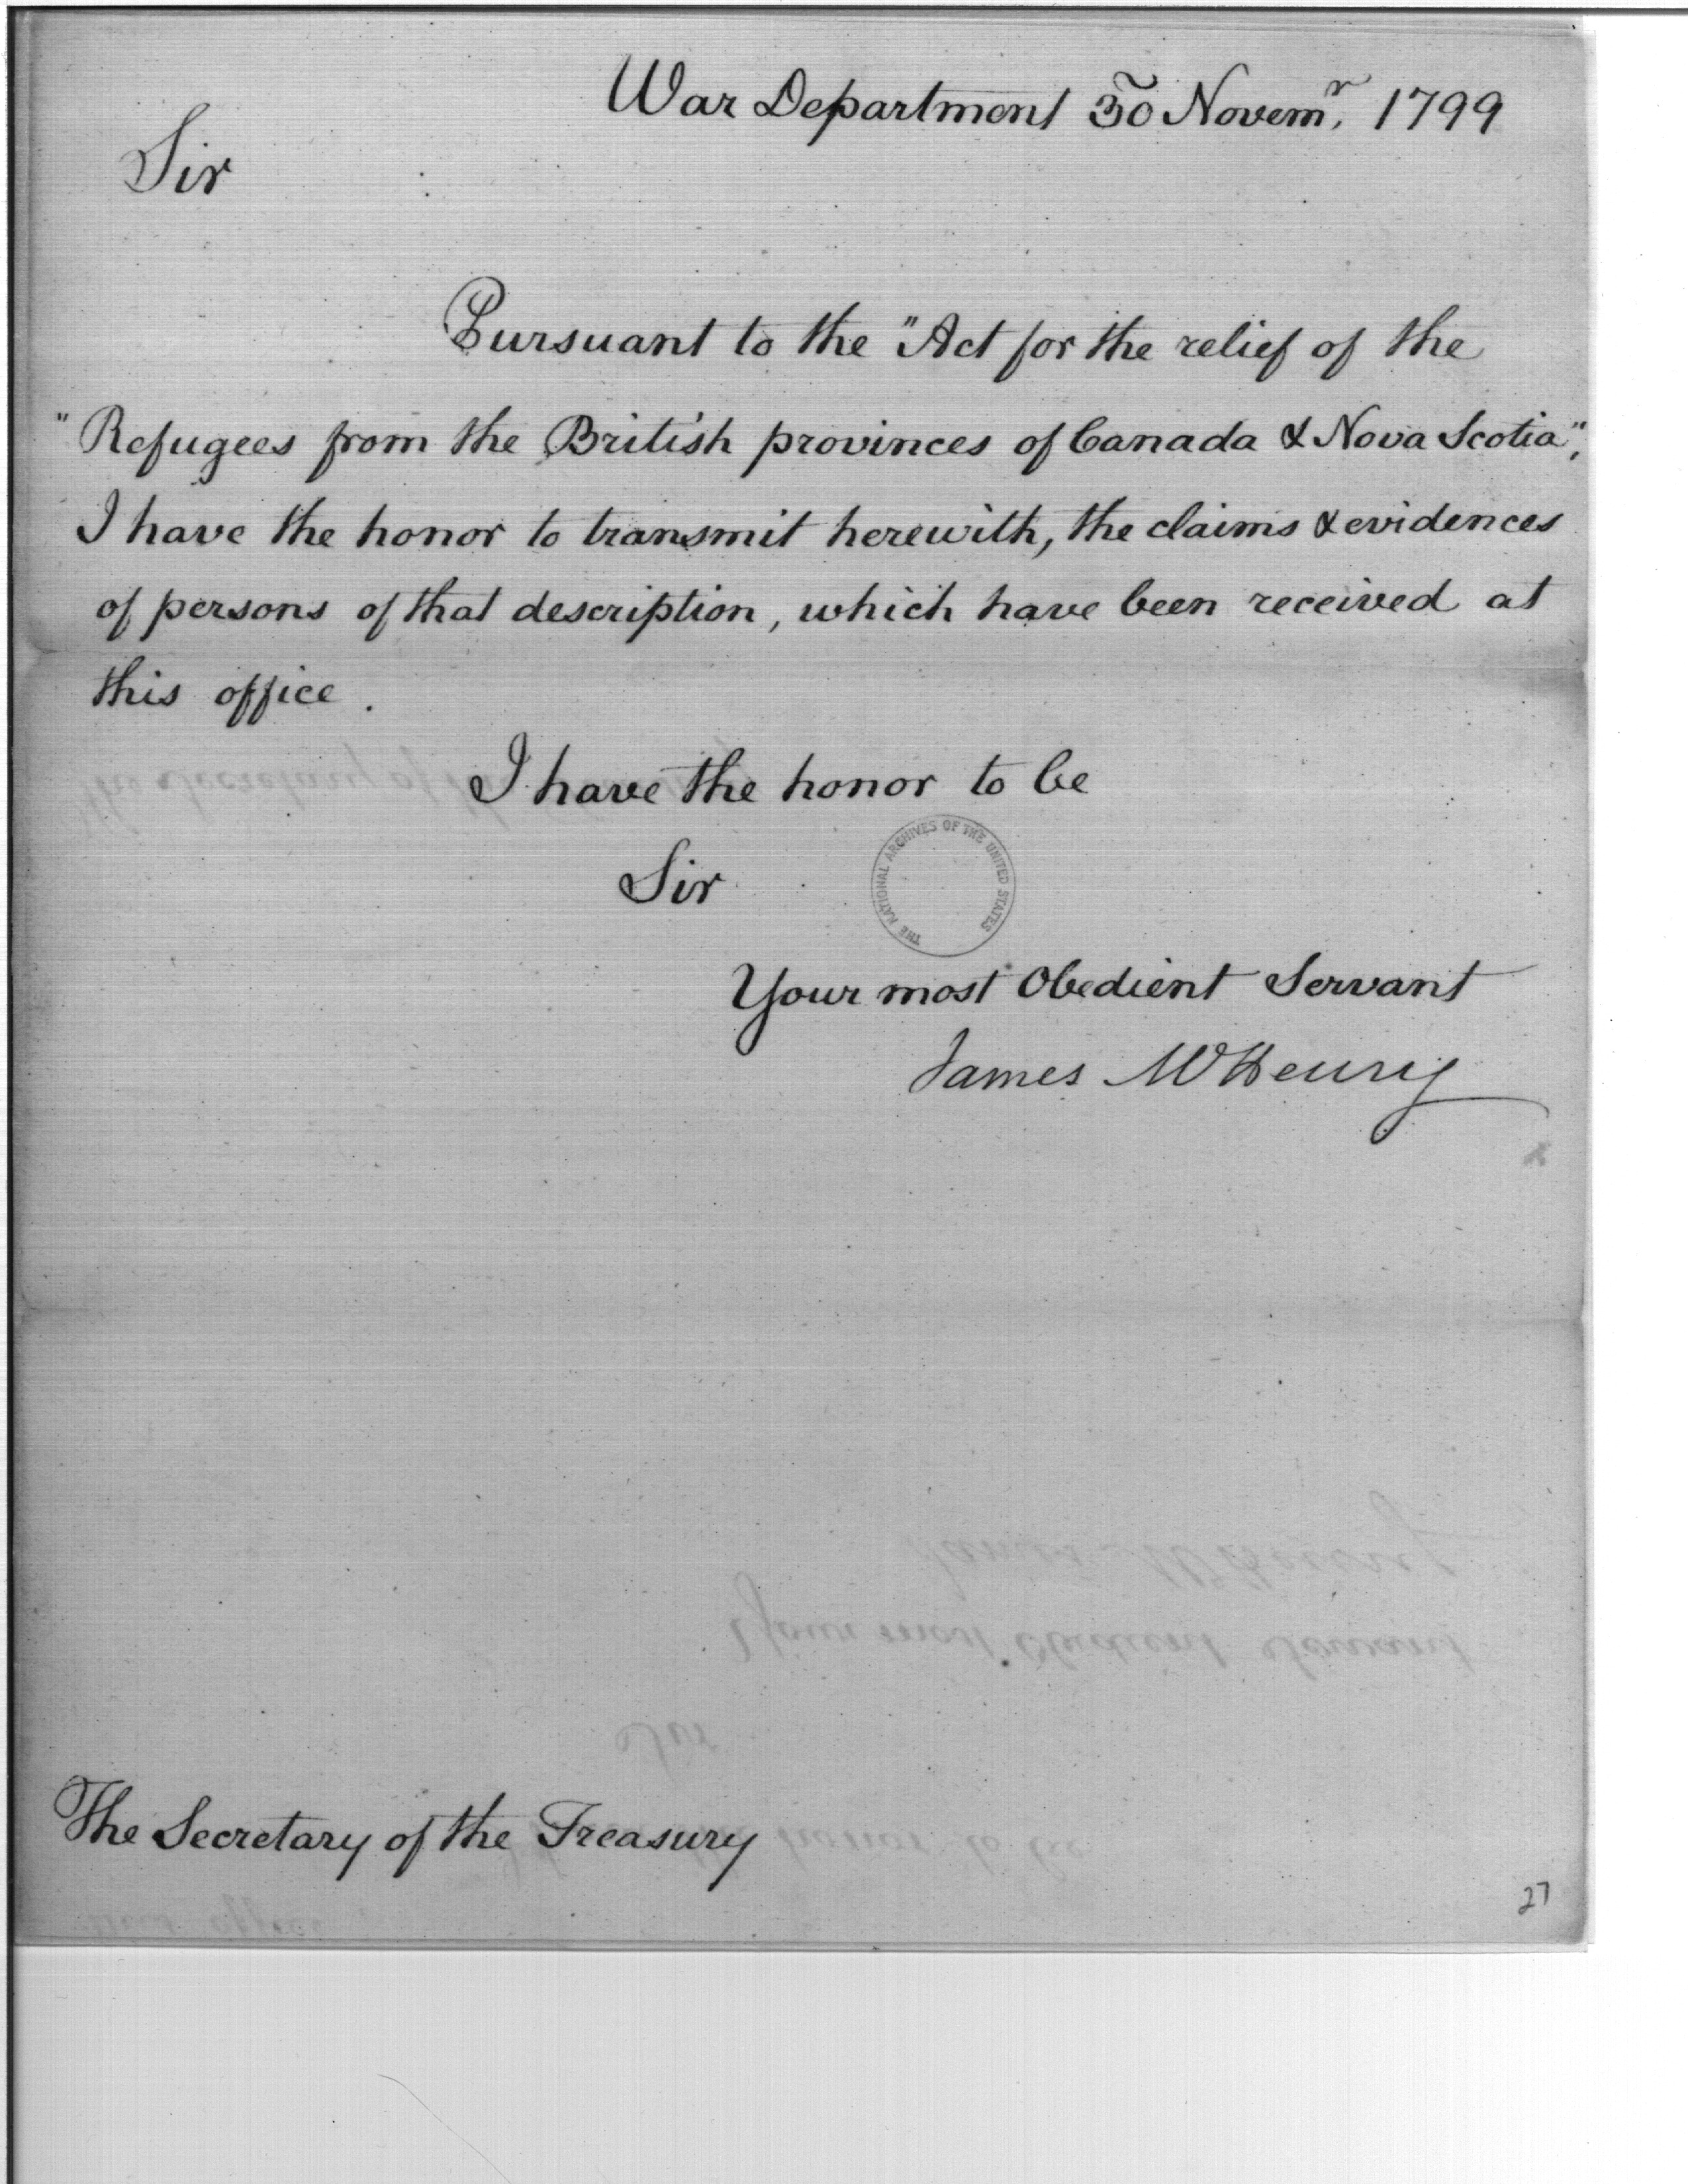 War Department 30 Novemr. 1799
Sir
Pursuant to the "Act for the relief of the
"Refugees from the British provinces of Canada & Nova Scotia",
I have the honor to transmit herewith, the claims & evidences
of persons of that description, which have been received at
this office.
I have the honor to be
Sir
THE NATIONAL ARCHIVES OF THE UNITED STATES
Your most Obedient Servant
James McHenry
The Secretary of the Treasury
27